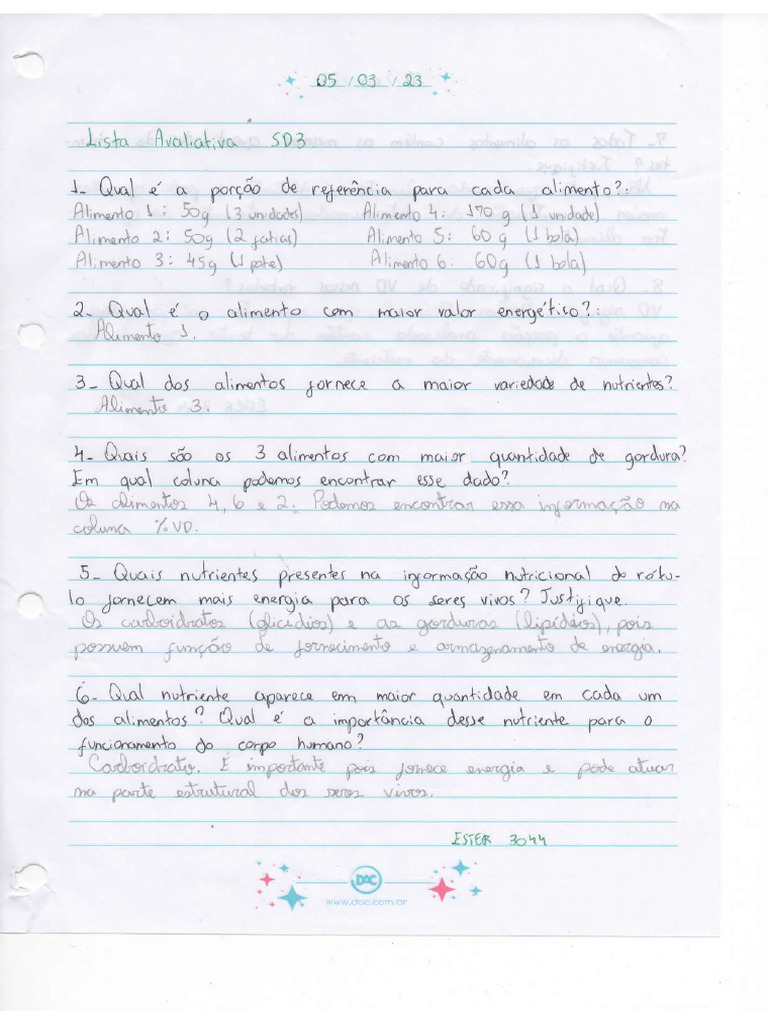 05 / 03 / 23
Lista Avaliativa SD3
1- Qual é a porção de referência para cada alimento?:
Alimento 1: 50g (3 unidades) Alimento 4: 170 g (1 unidade)
Alimento 2: 50g (2 fatias) Alimento 5: 60 g (1 bola)
Alimento 3: 45g (1 pote) Alimento 6. 60g (1 bola)
2- Qual é o alimento com maior valor energético?:
Alimento 1.
3- Qual dos alimentos fornece a maior variedade de nutrientes?
Alimento 3.
4- Quais são os 3 alimentos com maior quantidade de gordura?
Em qual coluna podemos encontrar esse dado?
Os alimentos 4, 6 e 2. Podemos encontrar essa informação na
coluna % VD.
5- Quais nutrientes presentes na informação nutricional do rótu-
lo fornecem mais energia para os seres vivos? Justifique.
Os carboidratos (glicídios) e as gorduras (lipídios), pois
possuem função de fornecimento e armazenamento de energia.
6- Qual nutriente aparece em maior quantidade em cada um
dos alimentos? Qual é a importância desse nutriente para o
funcionamento do corpo humano?
Carboidrato. É importante pois fornece energia e pode atuar
na parte estrutural dos seres vivos.
ESTER 3044
DAC
www.dac.com.br